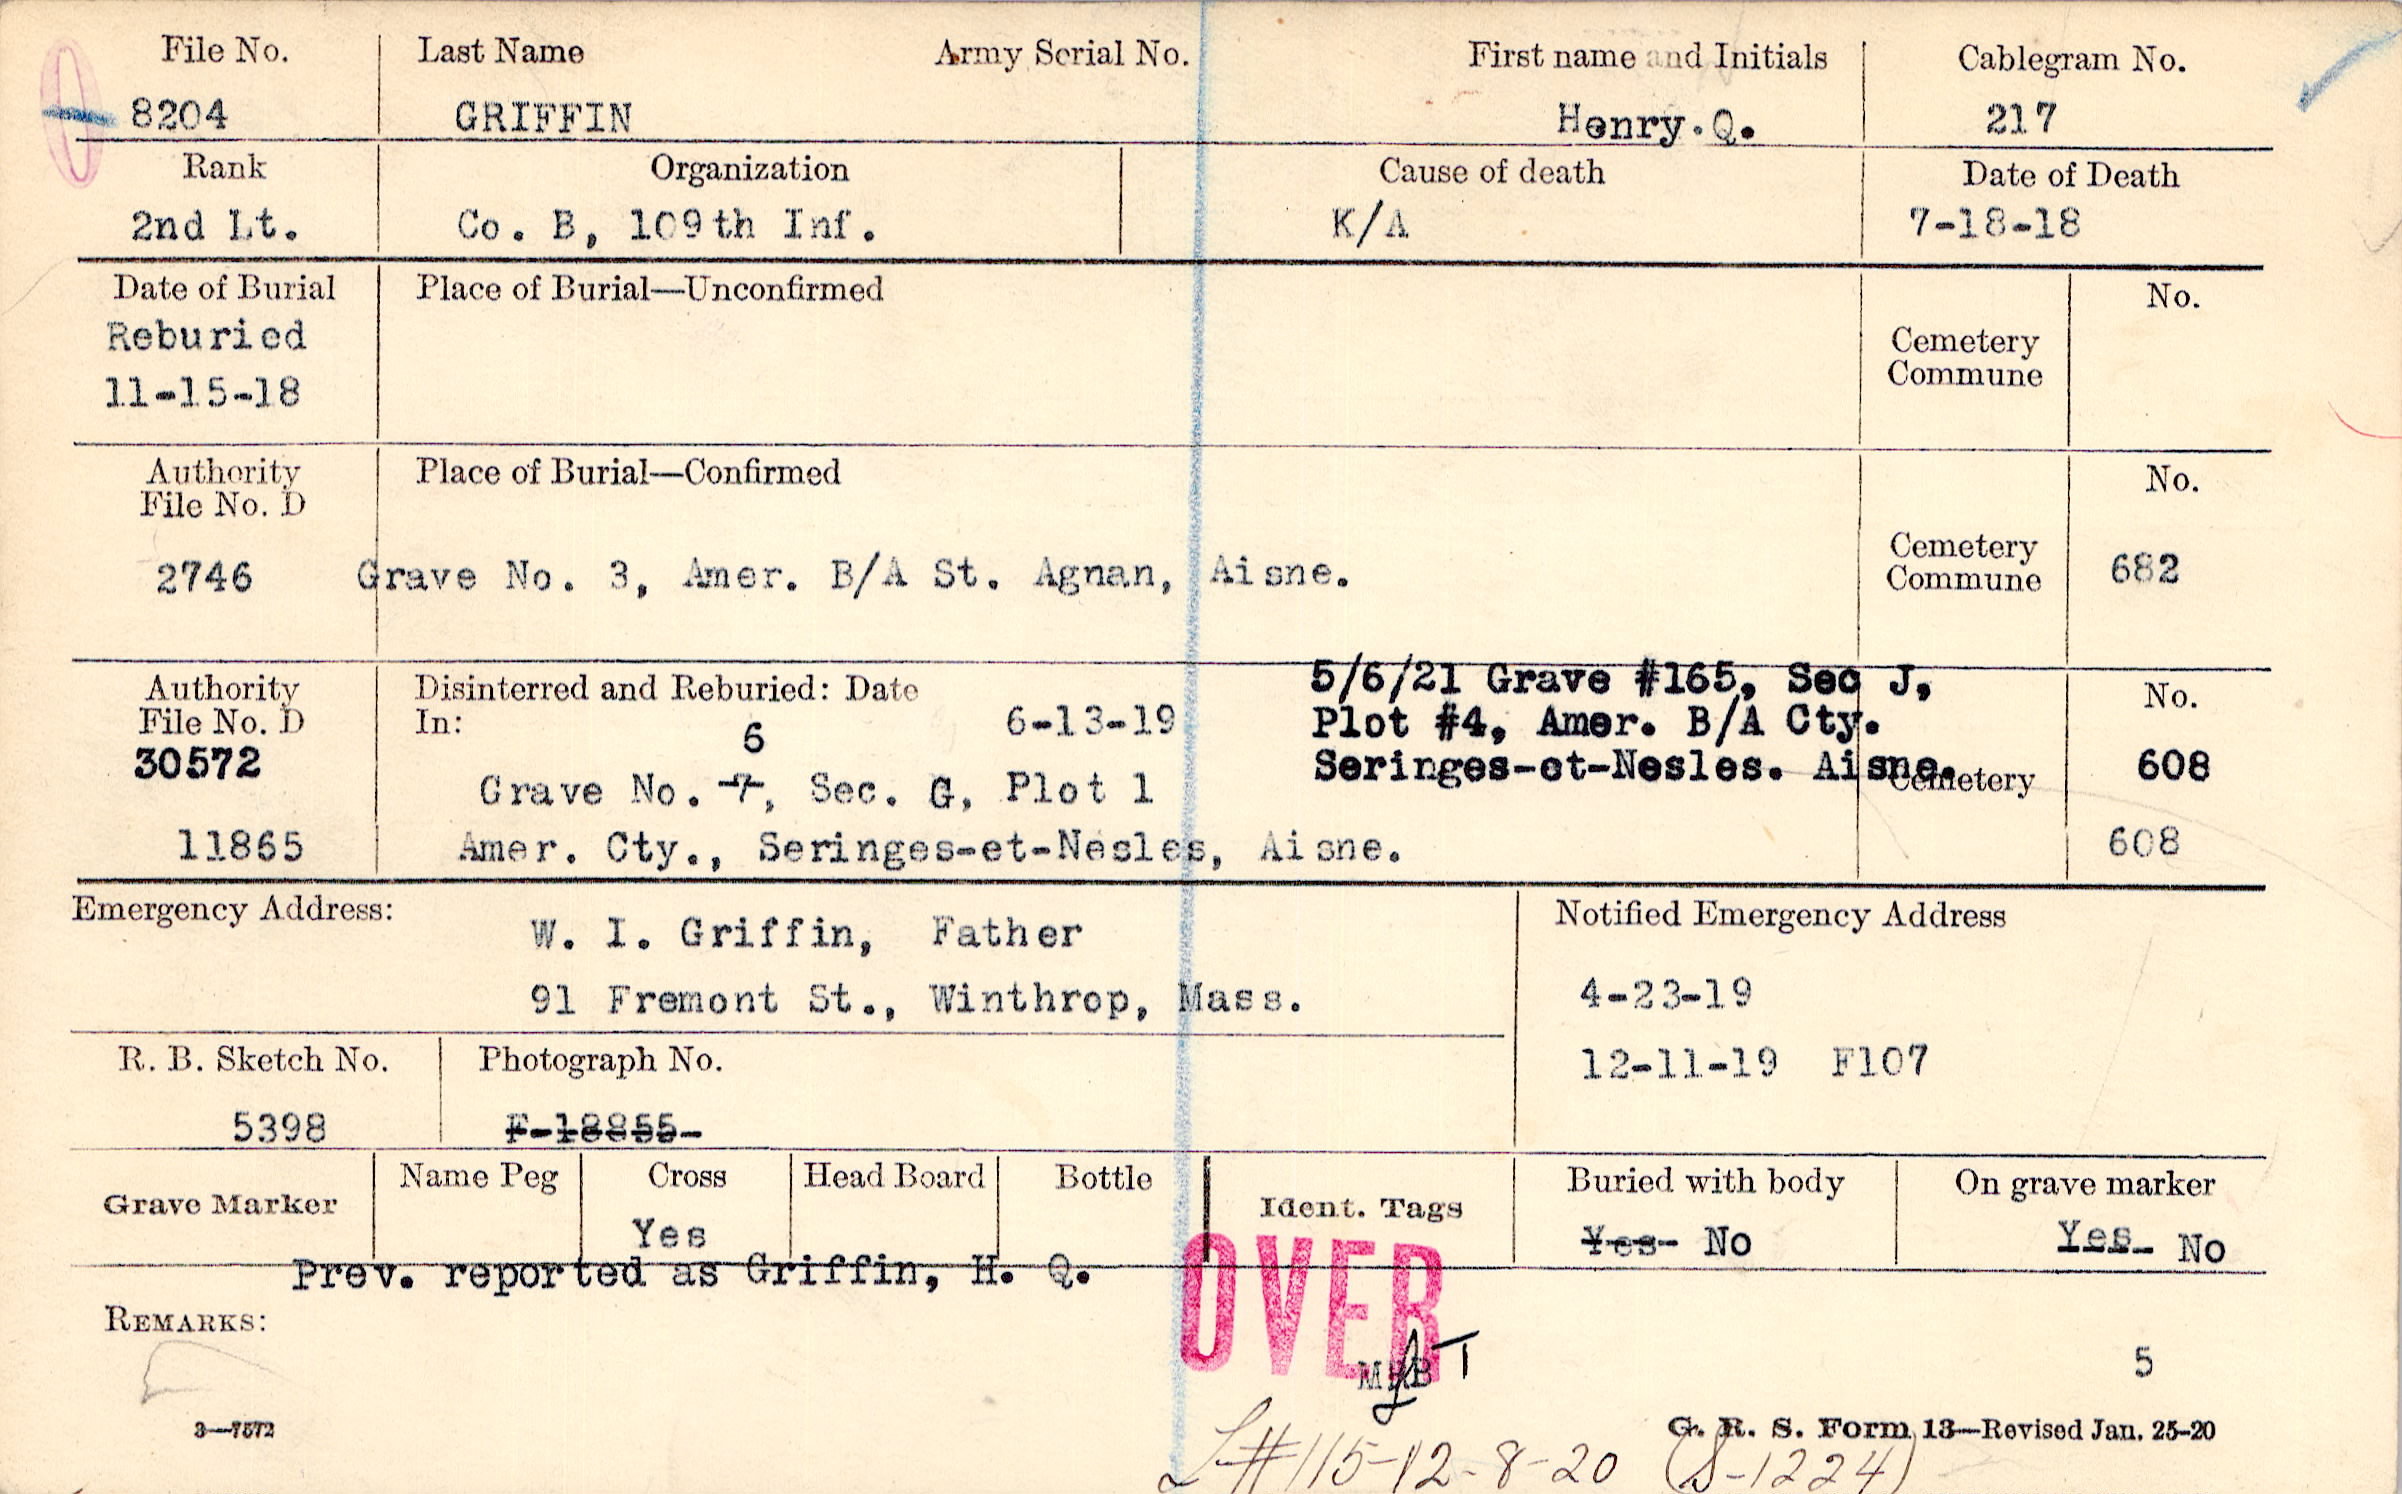 File No. Last Name Army Serial No. First name and Initials Cablegram No.
8204 GRIFFIN Henry. Q. 217
Rank Organization Cause of death Date of Death
2nd Lt. Co. B, 109th Inf. K/A 7-18-18
Date of Burial Place of Burial—Unconfirmed No.
Reburied
11-15-18
Cemetery
Commune
Authority Place of Burial—Confirmed No.
File No. D
2746 Grave No. 3, Amer. B/A St. Agnan, Aisne.
Cemetery
Commune 682
Authority Disinterred and Reburied: Date
File No. D In: 6-13-19
30572
6
Grave No. 7, Sec. G, Plot 1
11865 Amer. Cty., Seringes-et-Nesles, Aisne.
5/6/21 Grave #165, Sec J,
Plot #4, Amer. B/A Cty.
Seringes-et-Nesles. Aisne.
No.
Cemetery 608
608
Emergency Address: W. I. Griffin, Father
91 Fremont St., Winthrop, Mass.
Notified Emergency Address
4-23-19
12-11-19 F107
R. B. Sketch No. Photograph No.
5398 F-18855-
Grave Marker Name Peg Cross Head Board Bottle Ident. Tags Buried with body On grave marker
Yes Yes- No Yes- No
Prev. reported as Griffin, H. Q.
OVER
REMARKS:
5
3—7572
G. R. S. Form 13—Revised Jan. 25-20
#115-12-8-20 (S-1224)